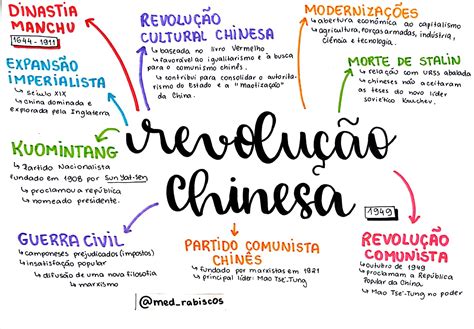 DINASTIA
MANCHU
1644-1911
EXPANSÃO
IMPERIALISTA
século XIX
China dominada e
explorada pela Inglaterra
KUOMINTANG
Partido Nacionalista
fundado em 1908 por Sun Yat-Sen
proclamou a república
nomeado presidente.
GUERRA CIVIL
camponeses prejudicados (impostos)
insatisfação popular
difusão de uma nova filosofia
marxismo
REVOLUÇÃO
CULTURAL CHINESA
baseada no livro Vermelho
favorável ao igualitarismo e à busca
para o comunismo chinês.
contribui para consolidar o autorita-
rismo do Estado e a "Maotização"
da China.
revolução
chinesa
PARTIDO COMUNISTA
CHINÊS
fundado por marxistas em 1921
principal líder: Mao Tsé-Tung
@med_rabiscos
MODERNIZAÇÕES
abertura econômica ao capitalismo
agricultura, forças armadas, indústria,
ciência e tecnologia.
MORTE DE STALIN
relação com URSS abalada
chineses não aceitaram
as teses do novo líder
soviético
1949
REVOLUÇÃO
COMUNISTA
outubro de 1949
proclamam a República
Popular da China
Mao Tsé-Tung no poder